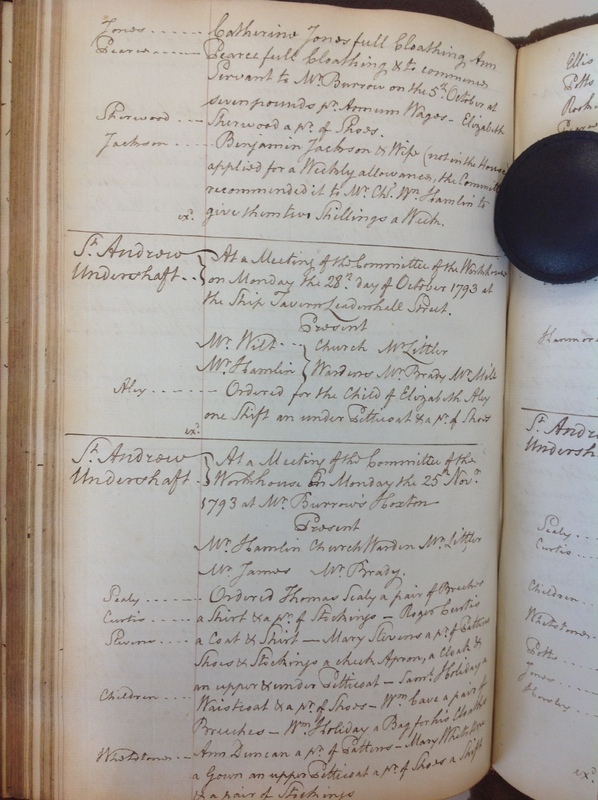 Jones ------ Catherine Jones full Cloathing Ann
Pearce ------ Pearce full Cloathing & to commence
Servant to Mr. Burrow on the 5th October at
seven pounds pr. Annum Wages - Elizabeth
Sherwood .... Sherwood a pr. of Shoes.
Jackson ..... Benjamin Jackson & Wife (not in the House)
applied for a Weekly allowance, the Committee
recommended it to Mr. Chs. Wm. Hamlin to
exd. give them two Shillings a Week.
St. Andrew At a Meeting of the Committee of the Workhouse
Undershaft .. on Monday the 28th. day of October 1793 at
the Ship Tavern Leadenhall Street.
Present
Mr. Wilt ... Church Mr. Littler
Mr. Hamlin Wardens Mr. Brady Mr. Mile
Aley ------ Ordered for the Child of Elizabeth Aley
one Shift an under Petticoat & a pr. of Shoes
exd.
St. Andrew At a Meeting of the Committee of the
Undershaft .. Workhouse on Monday the 25th Novr.
1793 at Mr. Burrow's Hoxton
Present
Mr. Hamlin Church Warden Mr. Littler
Mr. James Mr. Brady.
Sealy ------ Ordered Thomas Sealy a pair of Breeches
Curtis ----- a Shirt & a pr. of Stockings - Roger Curtis
Stevens .... a Coat & Shirt - Mary Stevens a pr. of Pattens
Shoes & Stockings a check Apron, a Cloak &
an upper & under Petticoat - Saml. Holiday a
Children .... Waistcoat & a pr. of Shoes - Wm. Cave a pair of
Breeches - Wm. Holiday a Bag for his Cloaths
Whetstone... Ann Duncan a pr. of Pattens - Mary Whetstone
a Gown an upper Petticoat a pr. of Shoes a Shift
& a pair of Stockings
Ellis
Potts
St. Andr
Undersh
Sealy ....
Curtis ...
Children ....
Whetstone..
Potts ....
Jones ....
exd.